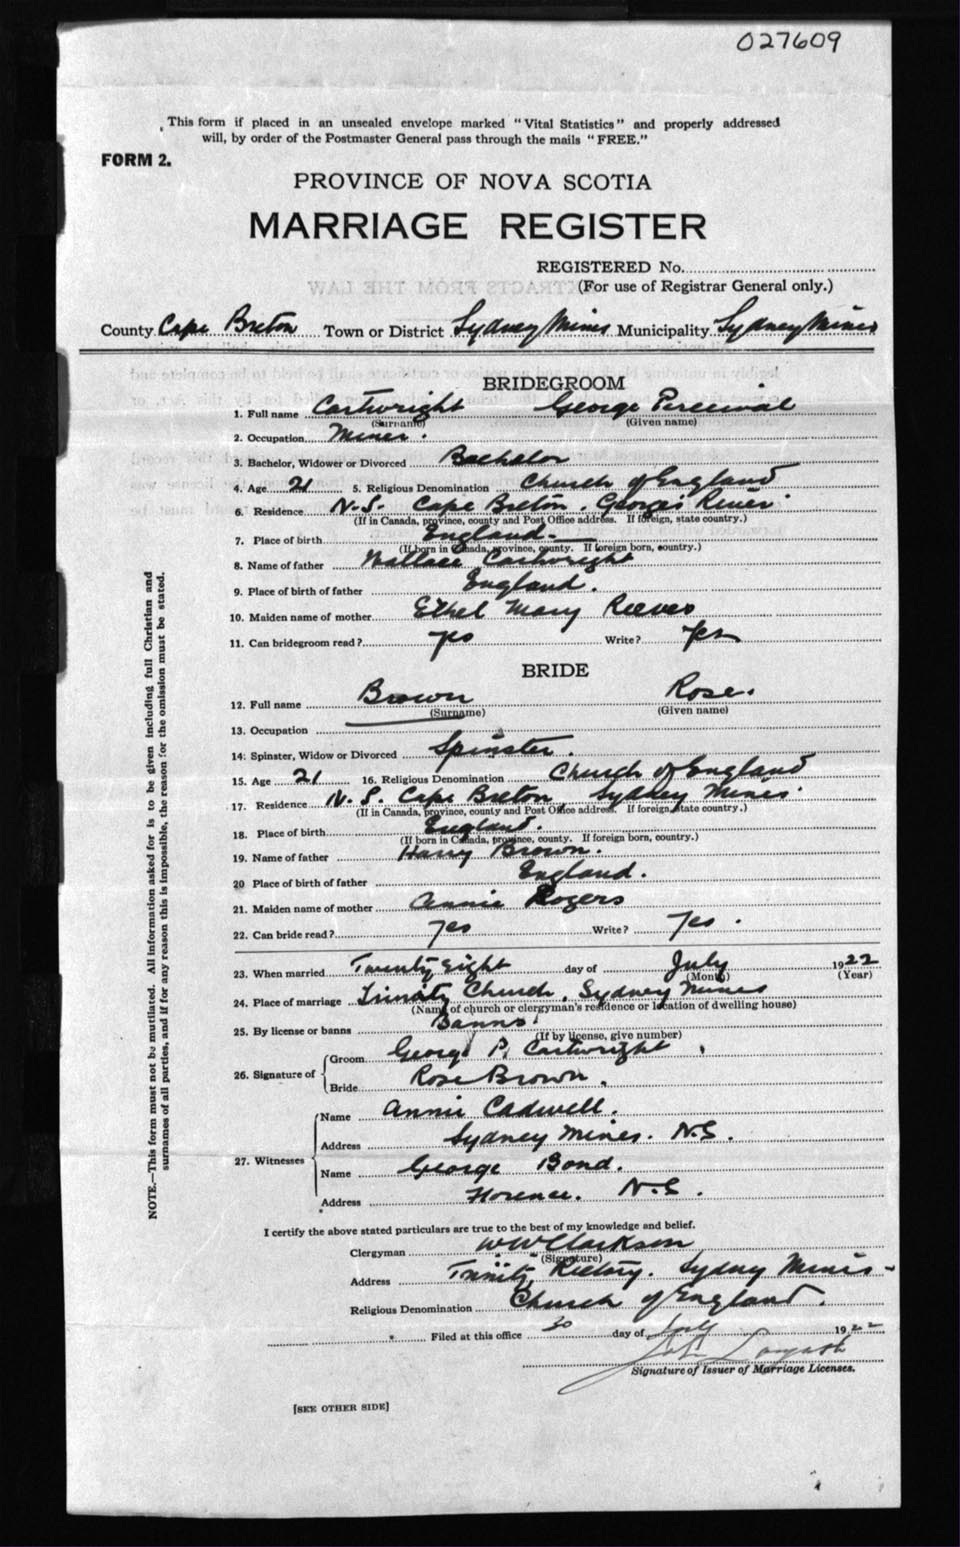 027609
This form if placed in an unsealed envelope marked "Vital Statistics" and properly addressed
will, by order of the Postmaster General pass through the mails "FREE."
FORM 2.
PROVINCE OF NOVA SCOTIA
MARRIAGE REGISTER
REGISTERED No.
(For use of Registrar General only.)
County Cape Breton Town or District Sydney Mines Municipality Sydney Mines
BRIDEGROOM
1. Full name Cartwright George Percival
(Surname) (Given name)
2. Occupation Miner.
3. Bachelor, Widower or Divorced Bachelor
4. Age 21 5. Religious Denomination Church of England
6. Residence N.S. Cape Breton. Georges River.
(If in Canada, province, county and Post Office address. If foreign, state country.)
7. Place of birth England
(If born in Canada, province, county. If foreign born, country.)
8. Name of father Wallace Cartwright
9. Place of birth of father England.
10. Maiden name of mother Ethel Mary Reeves
11. Can bridegroom read? yes Write? yes
BRIDE
12. Full name Brown Rose.
(Surname) (Given name)
13. Occupation
14. Spinster, Widow or Divorced Spinster.
15. Age 21 16. Religious Denomination Church of England
17. Residence N.S. Cape Breton Sydney Mines.
(If in Canada, province, county and Post Office address. If foreign, state country.)
18. Place of birth England.
(If born in Canada, province, county. If foreign born, country.)
19. Name of father Harry Brown.
20 Place of birth of father England.
21. Maiden name of mother Annie Rogers
22. Can bride read? yes Write? yes.
23. When married Twenty Eight day of July 1922
(Month) (Year)
24. Place of marriage Trinity Church, Sydney Mines
(Name of church or clergyman's residence or location of dwelling house)
25. By license or banns Banns.
(If by license, give number)
26. Signature of Groom George P. Cartwright
Bride Rose Brown.
27. Witnesses Name Annie Cadwell.
Address Sydney Mines. N.S.
Name George Bond.
Address Florence. N.S.
I certify the above stated particulars are true to the best of my knowledge and belief.
Clergyman W W Clarkson
(Signature)
Address Trinity Rectory. Sydney Mines
Religious Denomination Church of England.
Filed at this office 30 day of July 1922
Signature of Issuer of Marriage Licenses.
[SEE OTHER SIDE]
NOTE.—This form must not be mutilated. All information asked for is to be given including full Christian and
surnames of all parties, and if for any reason this is impossible, the reason for the omission must be stated.